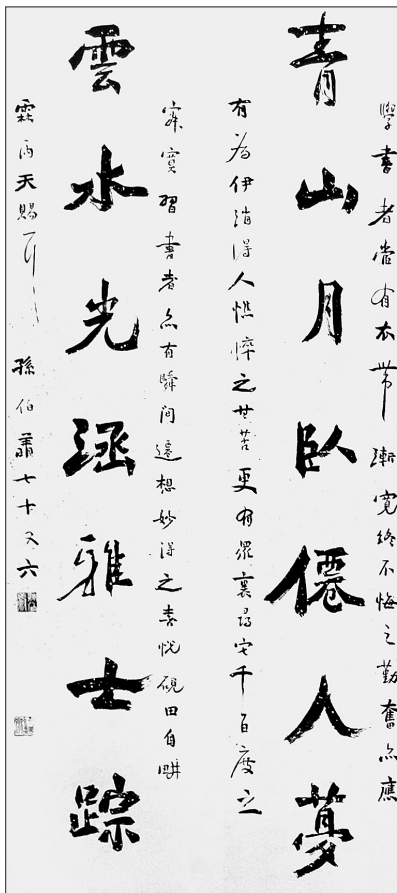 學書者當有衣帶漸寬終不悔之勤奮亦應
青山月臥僊人夢
有為伊消得人憔悴之甘苦更有眾裏尋它千百度之
寂寞習書者亦有瞬間遷想妙得之喜悅硯田自畊
雲水光涵雅士踪
霖雨天賜 孫伯翔七十又六